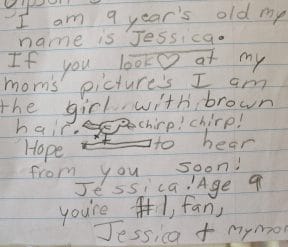 I am 9 year's old my
name is Jessica.
If you look♡ at my
mom's picture's I am
the girl with brown
hair. chirp! chirp!
Hope to hear
from you soon!
Jessica! Age 9
you're #1, fan,
Jessica +